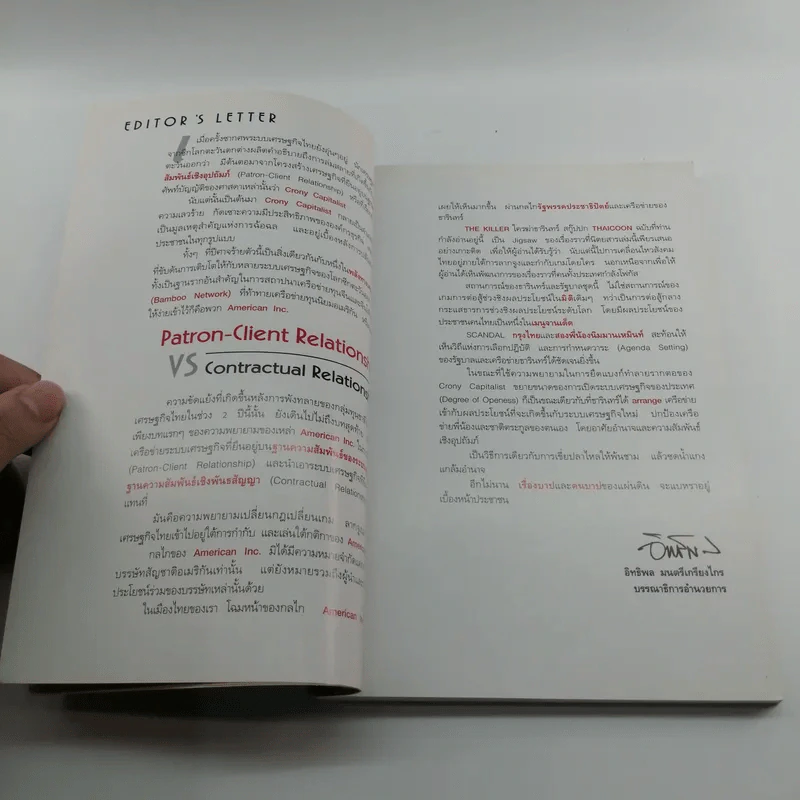 EDITOR'S LETTER
เมื่อครั้งซากศพระบบเศรษฐกิจไทยยังอุ่นๆอยู่
สัมพันธ์เชิงอุปถัมภ์ (Patron-Client Relationship)
ศัพท์บัญญัติของศาสดาเหล่านั้นว่า Crony Capitalist
นับแต่นั้นเป็นต้นมา Crony Capitalist กลายเป็น
ความเลวร้าย กัดเซาะความมีประสิทธิภาพขององค์กรธุรกิจ
เป็นมูลเหตุสำคัญแห่งการฉ้อฉล และอยู่เบื้องหลังการ
ประชาชนในทุกรูปแบบ
ทั้งๆ ที่ปีศาจร้ายตัวนี้เป็นสิ่งเดียวกันกับหนึ่งใน
ที่ขับดันการเติบโตให้กับหลายระบบเศรษฐกิจของโลกซีกตะวัน
ทั้งเป็นฐานรากอันสำคัญในการสถาปนาเครือข่ายทุนจีน
(Bamboo Network) ที่ท้าทายเครือข่ายทุนนิยมอเมริกัน
ให้ง่ายเข้าไว้ก็คือพวก American Inc.
Patron-Client Relationsh
VS Contractual Relations
ความขัดแย้งที่เกิดขึ้นหลังการพังทลายของกลุ่มทุน
เศรษฐกิจไทยในช่วง 2 ปีนี้นั้น ยังเดินไปไม่ถึงบทสุดท้าย
เพียงบทแรกๆ ของความพยายามของเหล่า American Inc.
เครือข่ายระบบเศรษฐกิจที่ยืนอยู่บนฐานความสัมพันธ์ของระบบ
(Patron-Client Relationship) และนำเอาระบบเศรษฐกิจที่
ฐานความสัมพันธ์เชิงพันธสัญญา (Contractual Relations
แทนที่
มันคือความพยายามเปลี่ยนกฎเปลี่ยนเกม ลาก
เศรษฐกิจไทยเข้าไปอยู่ใต้การกำกับ และเล่นใต้กติกาของ American
กลไกของ American Inc. มิได้มีความหมายจำกัด
บรรษัทสัญชาติอเมริกันเท่านั้น แต่ยังหมายรวมถึงผู้นำและ
ประโยชน์ร่วมของบรรษัทเหล่านั้นด้วย
ในเมืองไทยของเรา โฉมหน้าของกลไก American In
เผยให้เห็นมากขึ้น ผ่านกลไกรัฐพรรคประชาธิปัตย์และเครือข่ายของ
ธารินทร์
THE KILLER ใครฆ่าธารินทร์ สกู๊ปปก THAICOON ฉบับที่ท่าน
กำลังอ่านอยู่นี้ เป็น Jigsaw ของเรื่องราวที่นิตยสารเล่มนี้เพียรเสนอ
อย่างเกาะติด เพื่อให้ผู้อ่านได้รับรู้ว่า นับแต่นี้ไปการเคลื่อนไหวสังคม
ไทยอยู่ภายใต้การลากจูงและกำกับเกมโดยใคร นอกเหนือจากเพื่อให้
ผู้อ่านได้เห็นพัฒนาการของเรื่องราวที่คนทั้งประเทศกำลังโฟกัส
สถานการณ์ของธารินทร์และรัฐบาลชุดนี้ ไม่ใช่สถานการณ์ของ
เกมการต่อสู้ช่วงชิงผลประโยชน์ในมิติเดิมๆ ทว่าเป็นการต่อสู้กลาง
กระแสธารการช่วงชิงผลประโยชน์ระดับโลก โดยมีผลประโยชน์ของ
ประชาชนคนไทยเป็นหนึ่งในเมนูจานเด็ด
SCANDAL กรุงไทยและสองพี่น้องนิมมานเหมินท์ สะท้อนให้
เห็นวิถีแห่งการเลือกปฏิบัติ และการกำหนดวาระ (Agenda Setting)
ของรัฐบาลและเครือข่ายธารินทร์ได้ชัดเจนยิ่งขึ้น
ในขณะที่ใช้ความพยายามในการยึดแบงก์ทำลายรากตอของ
Crony Capitalist ขยายขนาดของการเปิดระบบเศรษฐกิจของประเทศ
(Degree of Openess) ก็เป็นขณะเดียวกับที่ธารินทร์ได้ arrange เครือข่าย
เข้ากับผลประโยชน์ที่จะเกิดขึ้นกับระบบเศรษฐกิจใหม่ ปกป้องเครือ
ข่ายพี่น้องและชาติตระกูลของตนเอง โดยอาศัยอำนาจและความสัมพันธ์
เชิงอุปถัมภ์
เป็นวิธีการเดียวกับการเขี่ยปลาไหลให้พ้นชาม แล้วซดน้ำแกง
แกล้มอำนาจ
อีกไม่นาน เรื่องบาปและคนบาปของแผ่นดิน จะแบหราอยู่
เบื้องหน้าประชาชน
อิทธิพล มนตรีเกรียงไกร
บรรณาธิการอำนวยการ